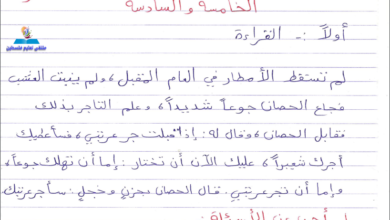 الخامسة والسادسة
أولاً :- القراءة
ملتقى تعليم فلسطين
لم تسقط الأمطار في العام المقبل، ولم ينبت العشب
فجاع الحصان جوعاً شديداً، وعلم التاجر بذلك
فقابل الحصان، وقال له: إذا قبلت جر عربتي، فسأعطيك
أجرك شعيراً، عليك الآن أن تختار: إما أن تهلك جوعاً،
وإما أن تجر عربتي. قال الحصان بحزنٍ وخجلٍ: سأجر عربتك